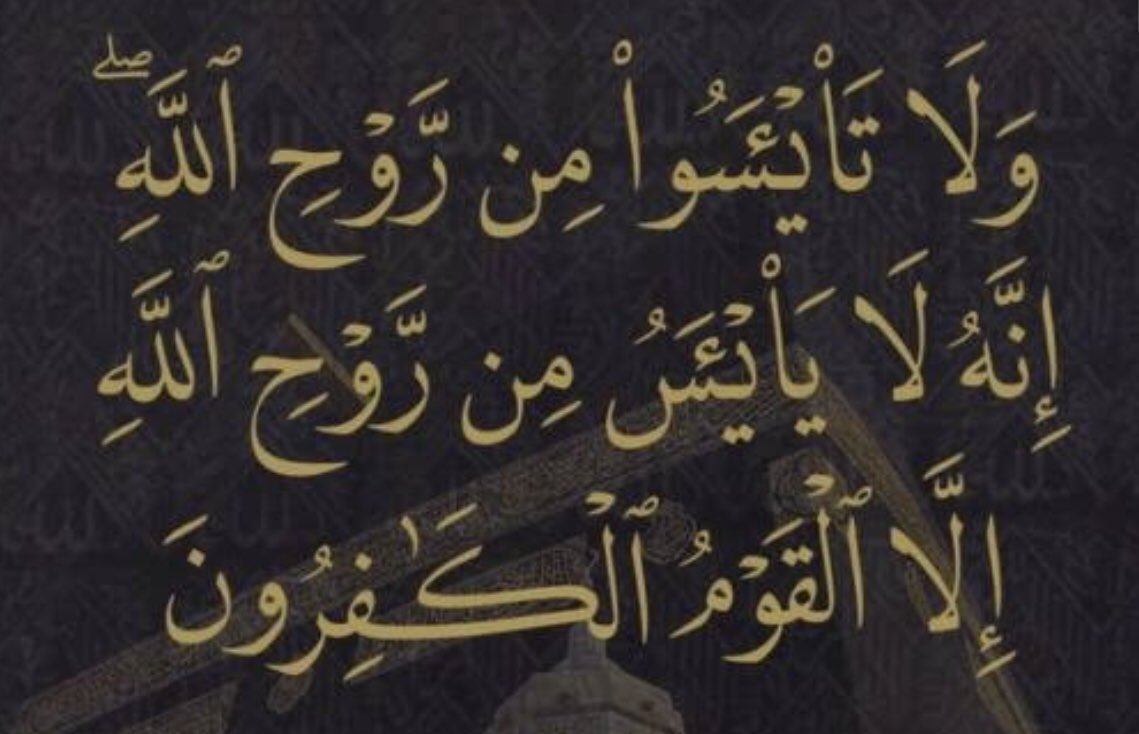 وَلَا تَا۟يْـَٔسُوا۟ مِن رَّوْحِ ٱللَّهِ ۖ
إِنَّهُۥ لَا يَا۟يْـَٔسُ مِن رَّوْحِ ٱللَّهِ
إِلَّا ٱلْقَوْمُ ٱلْكَـٰفِرُونَ